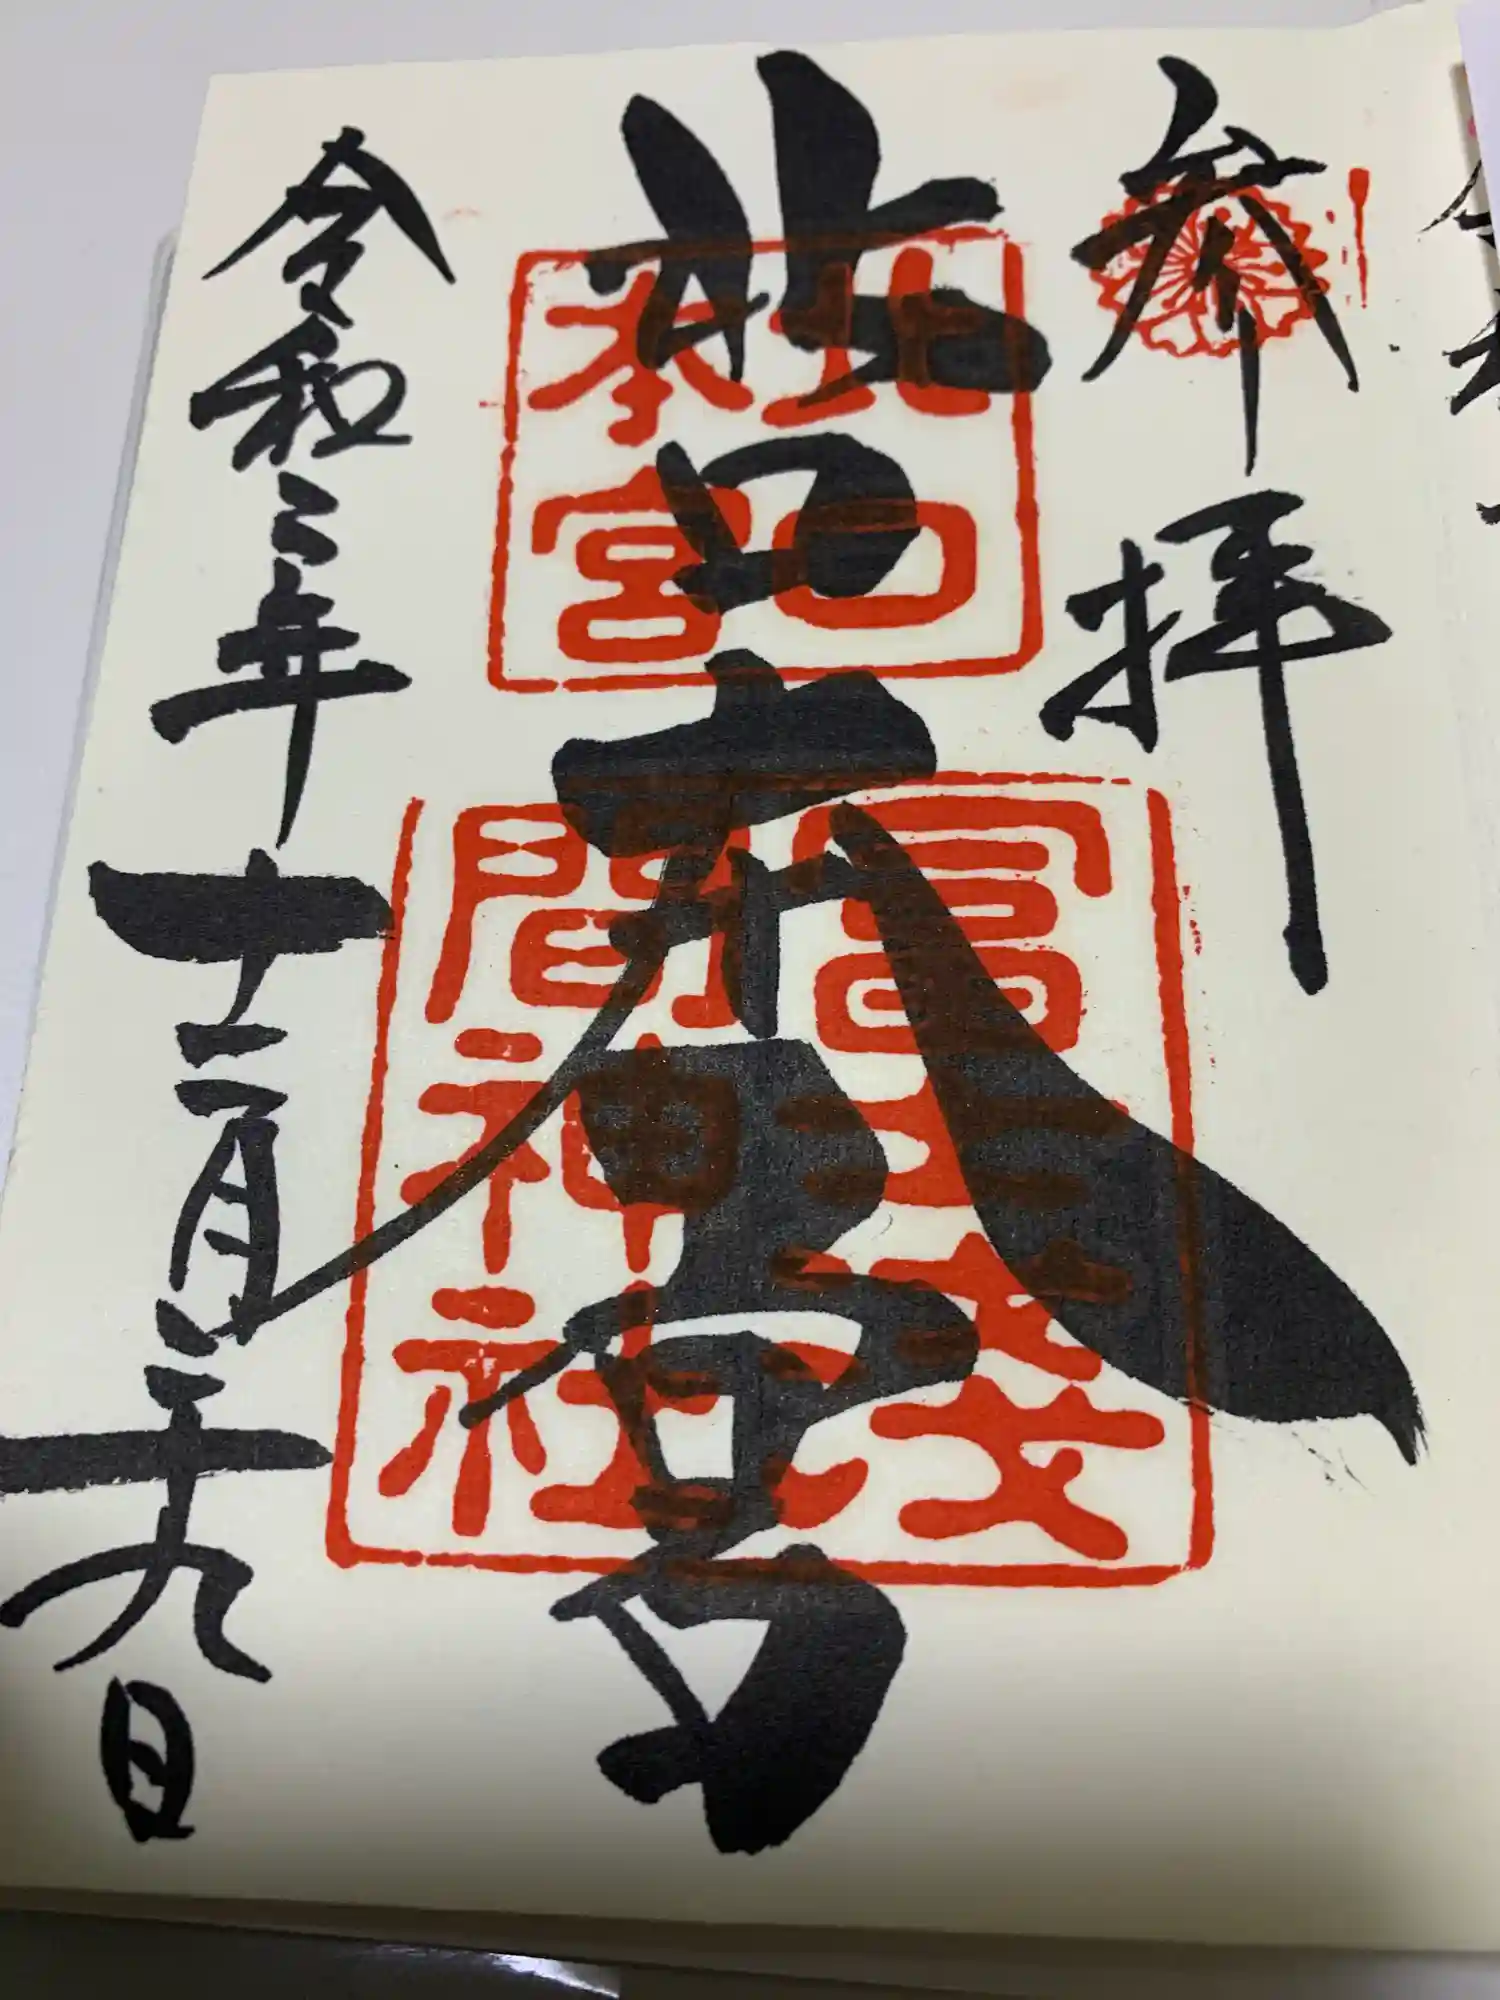 参拝
北口本宮
北口
本宮
冨士淺
間神社
令和二年十二月二十九日